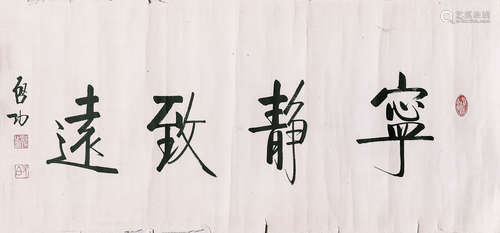 寧靜致遠
啓功